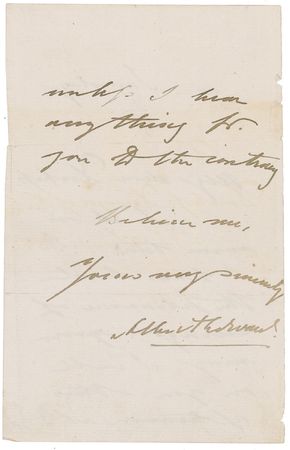 unless I hear
anything fr.
you to the contrary
Believe me,
Yours very sincerely
Albert Edward.